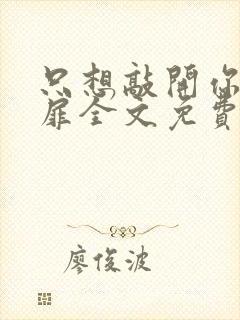 只想敲開你
扉全文免費
廖俊波